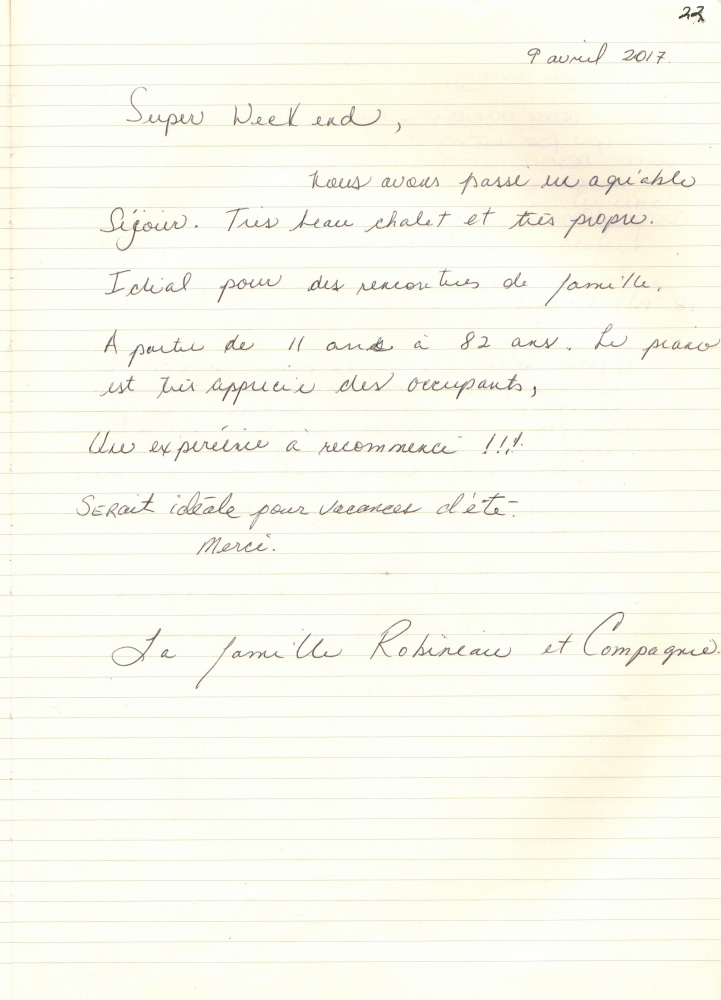 22
9 avril 2017
Super Week end,
Nous avons passé un agréable
Séjour. Très beau chalet et très propre.
Idéal pour des rencontres de famille.
A partir de 11 ans à 82 ans. Le piano
est très apprécié des occupants,
Une expérience à recommencé !!!
SERait idéale pour vacances d'été.
Merci.
La famille Robineau et Compagnie.